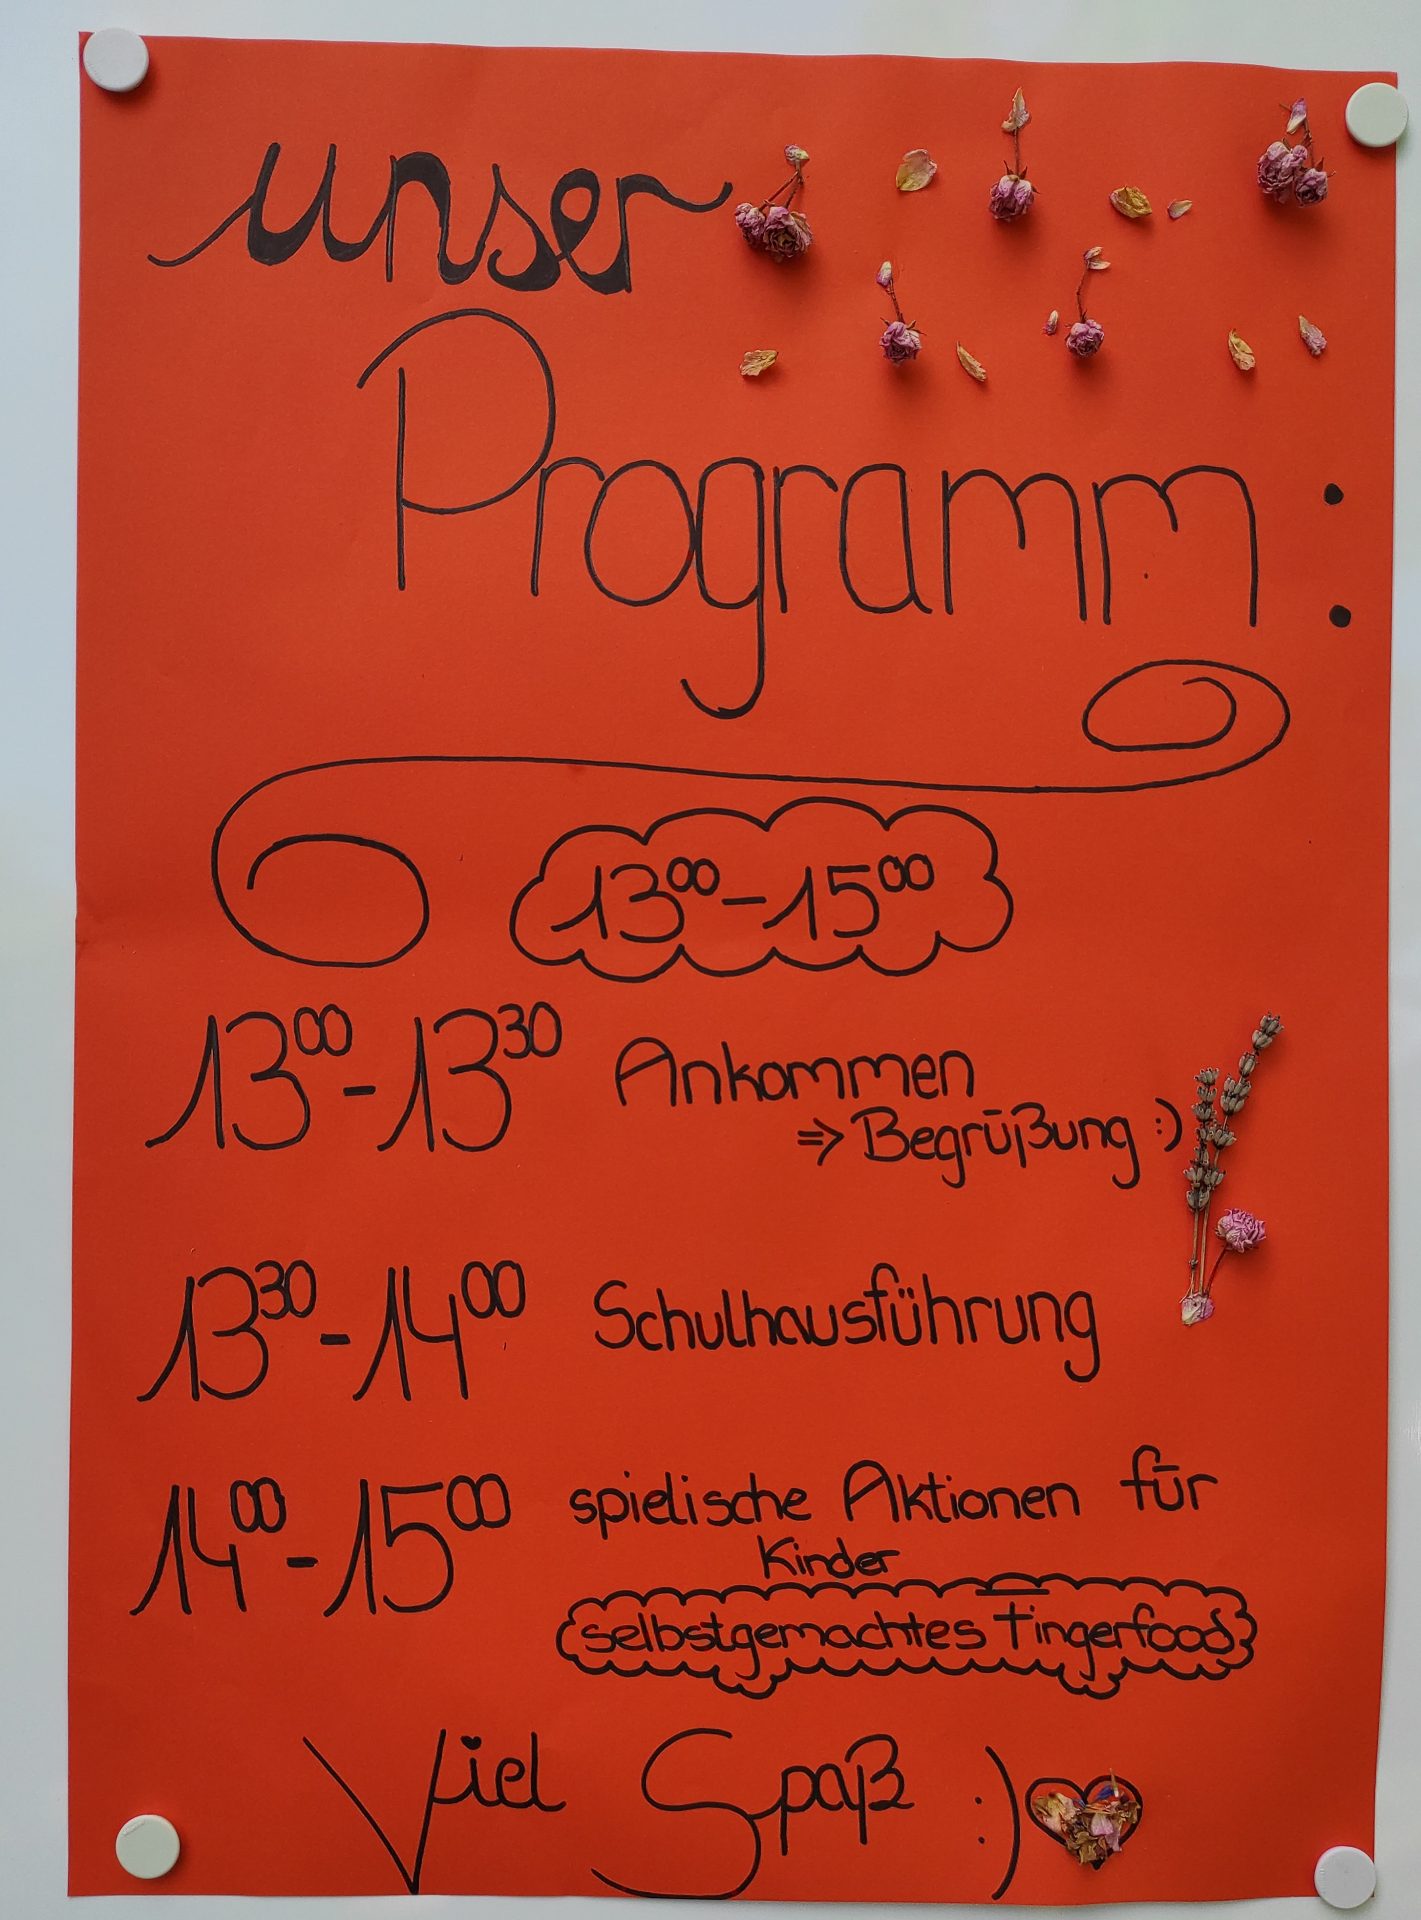 unser
Programm:
13⁰⁰-15⁰⁰
13⁰⁰-13³⁰ Ankommen
⇒ Begrüßung :)
13³⁰-14⁰⁰ Schulhausführung
14⁰⁰-15⁰⁰ spielische Aktionen für
Kinder
selbstgemachtes Fingerfood
Viel Spaß :)